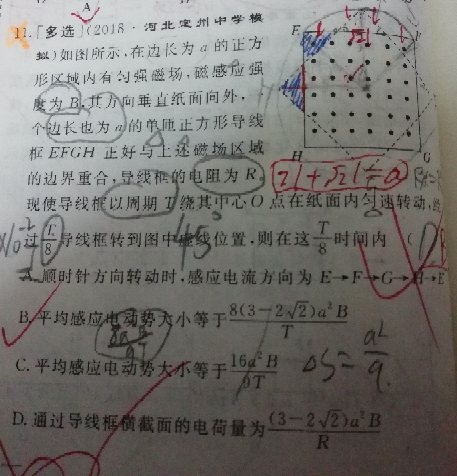 A
11.[多选](2018·河北定州中学模
拟)如图所示,在边长为a的正方
形区域内有匀强磁场,磁感应强
度为B,其方向垂直纸面向外,
个边长也为a的单匝正方形导线
框EFGH正好与上述磁场区域
的边界重合,导线框的电阻为R。
现使导线框以周期T绕其中心O点在纸面内匀速转动,经
过T/8导线框转到图中虚线位置,则在这T/8时间内 (
A.顺时针方向转动时,感应电流方向为E→F→G→H→E
B.平均感应电动势大小等于8(3-2√2)a²B/T
C.平均感应电动势大小等于16a²B/9T
D.通过导线框横截面的电荷量为(3-2√2)a²B/R
E
F
H
G
2l+√2l=a
45°
ΔS=a²/9